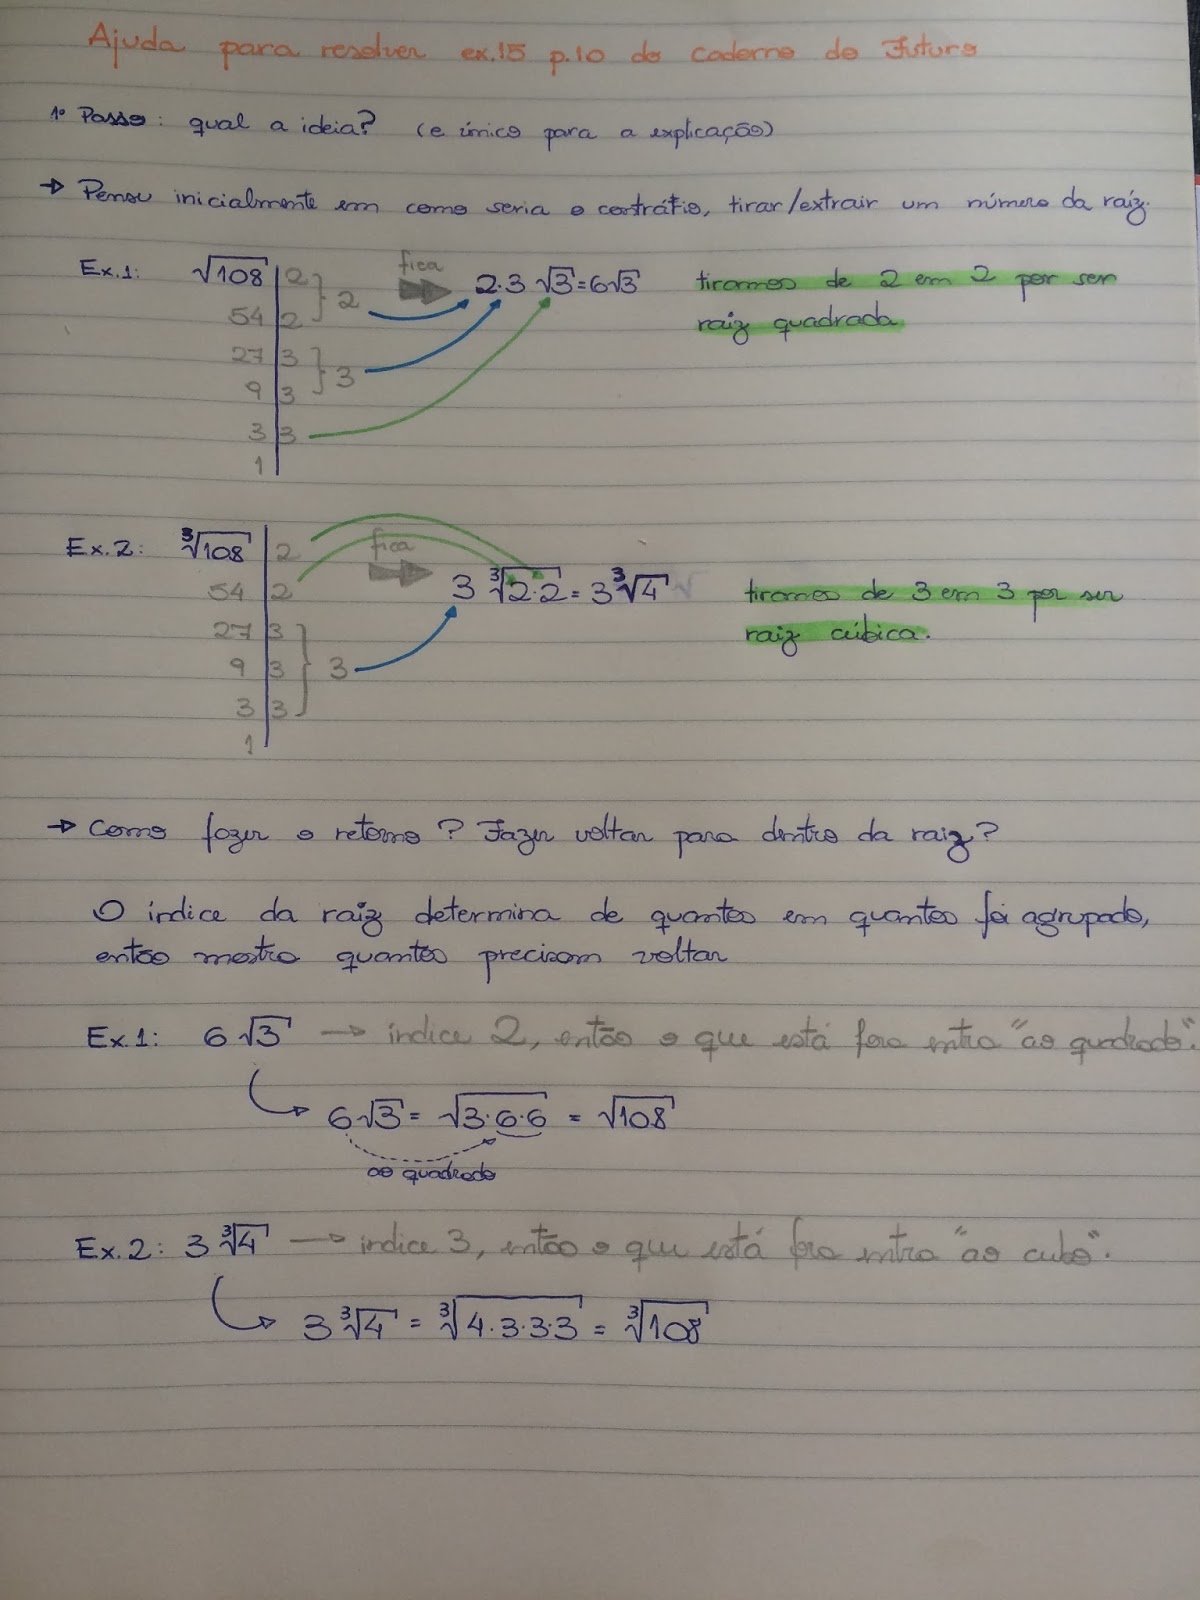 Ajuda para resolver ex.15 p.10 do Caderno do Futuro
1º Passo: qual a ideia? (e único para a explicação)
→ Pensar inicialmente em como seria o contrário, tirar/extrair um número da raíz.
Ex.1: √108 | 2 } 2 fica 2·3 √3 = 6√3 tiramos de 2 em 2 por ser
54 | 2 raiz quadrada
27 | 3 } 3
9 | 3
3 | 3
1
Ex.2: ∛108 | 2 fica
54 | 2 3 ∛2·2 = 3∛4 tiramos de 3 em 3 por ser
27 | 3 raiz cúbica.
9 | 3 } 3
3 | 3
1
→ Como fazer o retorno? Fazer voltar para dentro da raiz?
O índice da raiz determina de quantos em quantos foi agrupado,
então mostra quantos precisam voltar
Ex.1: 6√3 → índice 2, então o que está fora entra "ao quadrado".
6√3 = √3·6·6 = √108
ao quadrado
Ex.2: 3∛4 → índice 3, então o que está fora entra "ao cubo".
3∛4 = ∛4.3.3.3 = ∛108